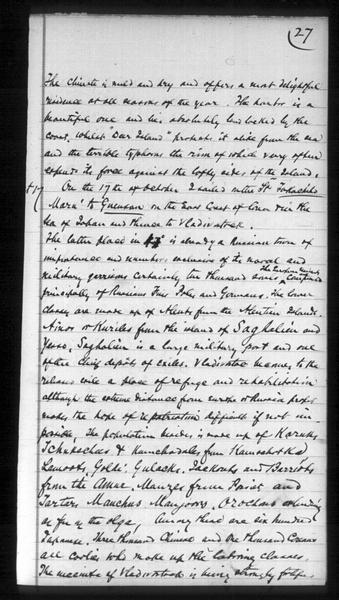 27
The climate is mild and dry and offers a most delightful
residence at all seasons of the year. The harbor is a
beautiful one and lies absolutely locked by the
coast, whilst "Deer Island" protects it alike from the sea
and the terrible typhoons the rim of which very often
expends its force against the lofty sides of the Island.
On the 17th of October I sailed in the Str
Maru to Guensan on the East Coast of Corea via the
Sea of Japan and thence to Vladivostock.
The latter place is already a Russian town of
importance and numbers exclusive of the naval and
military garrison certainly ten thousand souls composed
principally of Russians Finns Poles and Germans. The lower
classes are made up of Aleuts from the Aleutian Islands.
Ainos or Kuriles from the island of Saghalien and
Yesso. Saghalien is a large military port and one
of the chief depots of exiles. Vladivostoc becomes to the
release exile a place of refuge and rehabilitation
although the extreme distance from Russia proper
makes the hope of repatriation difficult if not im-
possible. The population besides is made up of
& Kamchadales from Kamschatka
Lamoots, Goldi, Gulacks,
from the Amur. Manzas from and
Tartars Manchus Orochons
or from the Olga, Among these are six hundred
Japanese. Three thousand Chinese and one thousand Coreans
all coolies who make up the laboring classes.
The of Vladivostock is being strongly